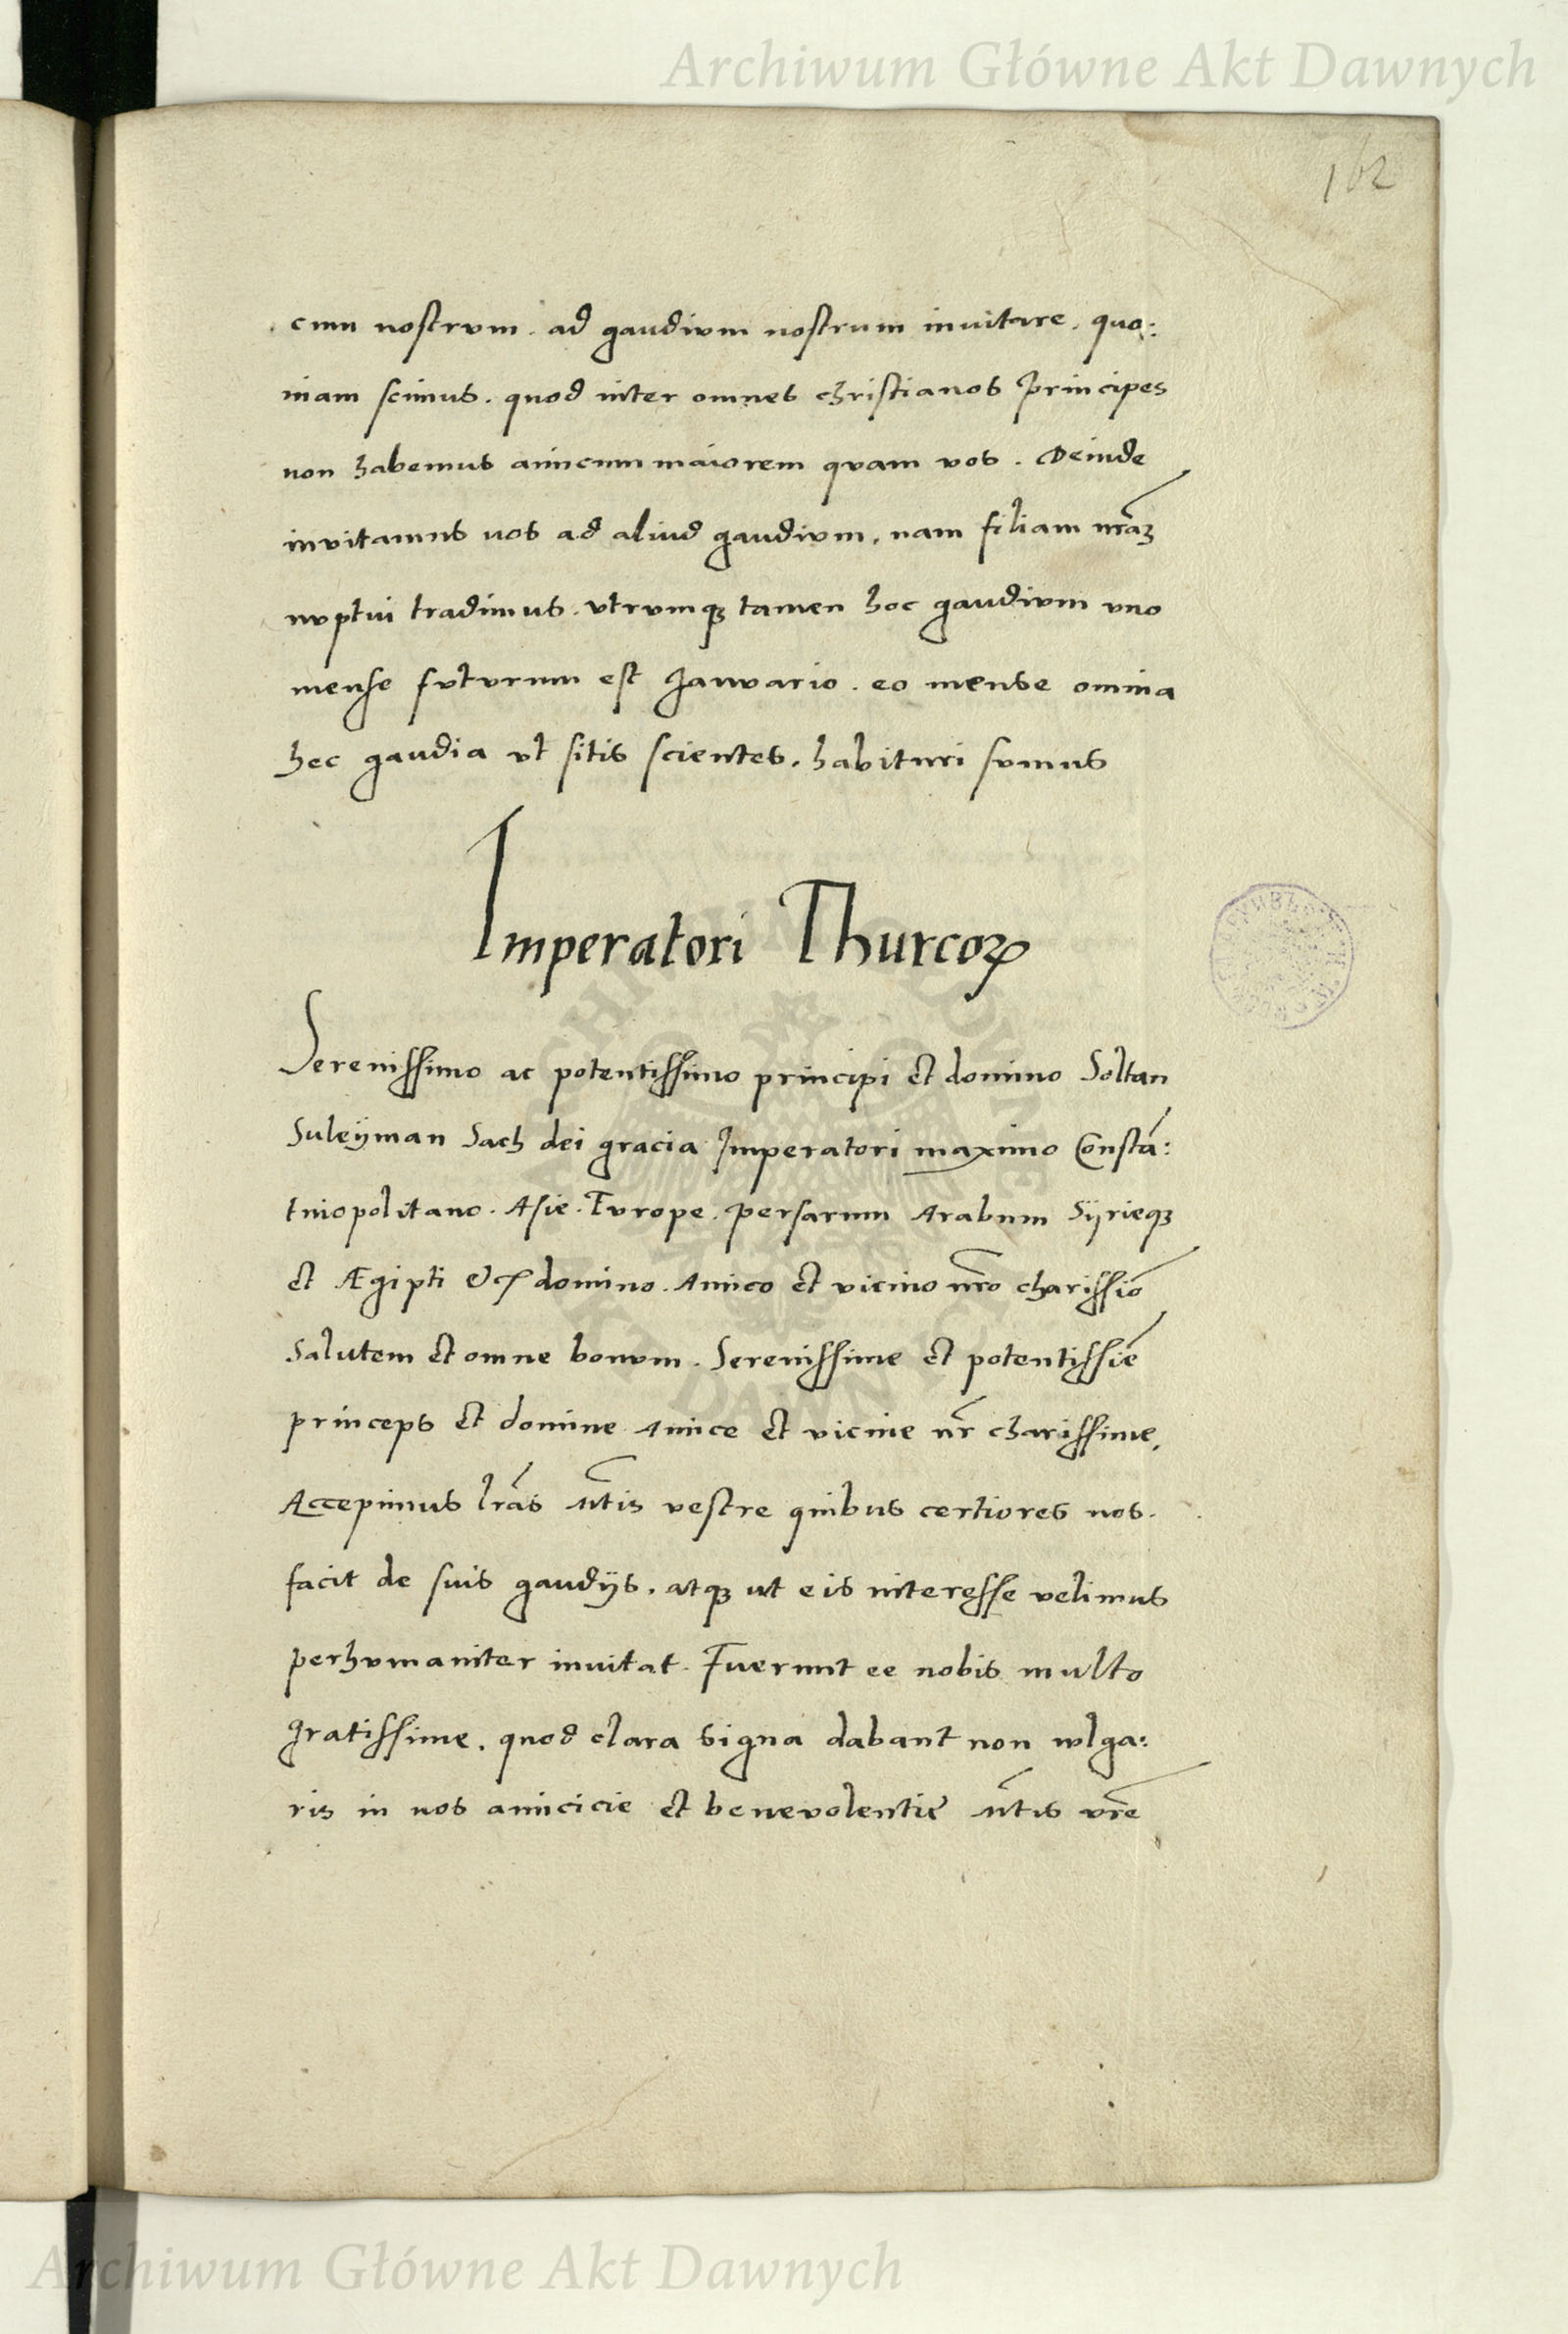 Archiwum Główne Akt Dawnych
162
cum nostrum. ad gaudium nostrum inuitare. quo:
niam scimus. quod inter omnes christianos principes
non habemus amicum maiorem quam vos. Deinde
invitamus uos ad aliud gaudium, nam filiam nr̃aʒ
nuptui tradimus. vtrumqʒ tamen hoc gaudium vno
mense futurum est Januario. eo mense omnia
hec gaudia vt sitis scientes, habituri sumus
Imperatori Thurcoꝝ
Serenissimo ac potentissimo principi et domino Soltan
Suleÿman Sach dei gracia Imperatori maximo Constã:
tinopolitano. Asie. Europe. persarum Arabum Sÿrieqʒ
et Ægipti &c domino. Amico et vicino nr̃o charissiõ
Salutem et omne bonum. Serenissime et potentissiẽ
princeps et domine Amice et vicine nr̃ charissime,
Accepimus lr̃as Mt̃is vestre quibus certiores nos
facit de suis gaudÿs. atqʒ ut eis interesse velimus
perhumaniter inuitat. Fuerunt ee nobis multo
gratissime. quod clara signa dabant non vulga:
ris in nos amicicie et benevolentie Mt̃is vr̃e
Archiwum Główne Akt Dawnych